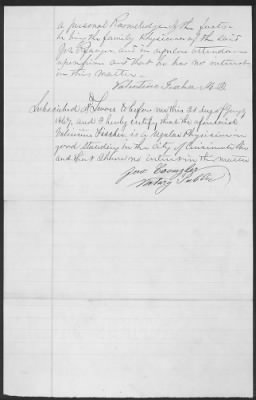 a personal Knowledge of the facts
he being the family Physician of the Said
and in regular attendance
upon him and that he has no interest
in this matter.
Valentine Fischer M.D.
Subscribed & Sworn to before me this 3d day of
1869, and I hereby certify that the aforesaid
Valentine Fischer is a regular Physician in
good Standing in the City of Cincinnati Ohio
and that I have no interest in this matter
Notary Public